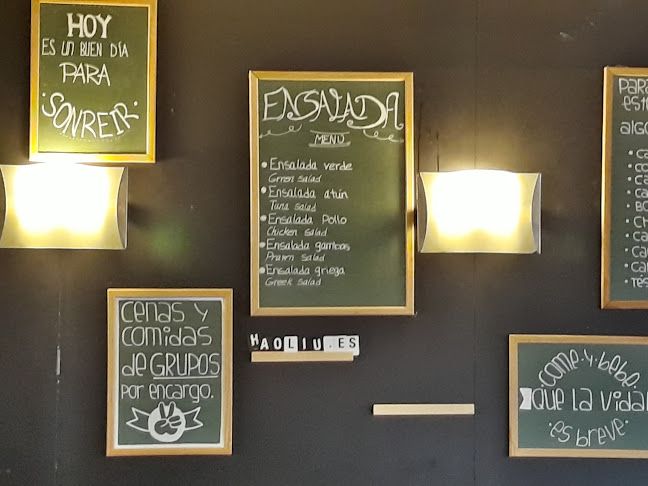 HOY
ES UN BUEN DÍA
PARA
·SONREIR·
ENSALADA
MENÚ
• Ensalada verde
Green salad
• Ensalada atún
Tuna salad
• Ensalada Pollo
Chicken salad
• Ensalada gambas
Prawn salad
• Ensalada griega
Greek salad
PARA
ALGO
CENAS Y
COMIDAS
de GRUPOS
POR ENCARGO.
HAOLIU.ES
·COME·Y·bebe·
QUE LA VIDA
·es breve·